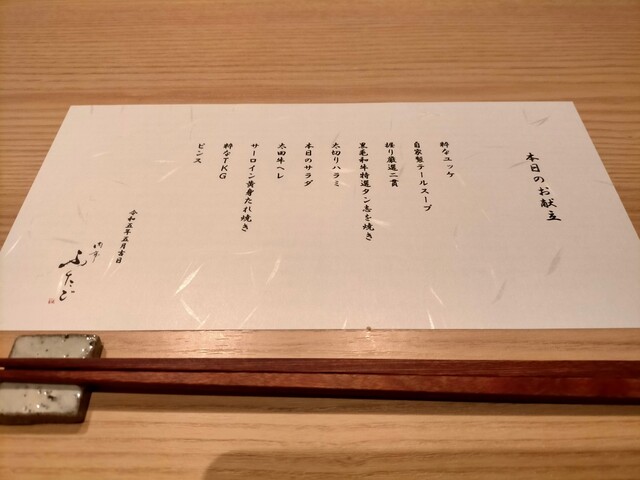 本日のお献立
粋なユッケ
自家製テールスープ
握り厳選二貫
黒毛和牛特選タン志を焼き
太切りハラミ
本日のサラダ
太田牛ヘレ
サーロイン黄身たれ焼き
粋なTKG
ピンス
令和五年五月吉日
肉亭
ふたご